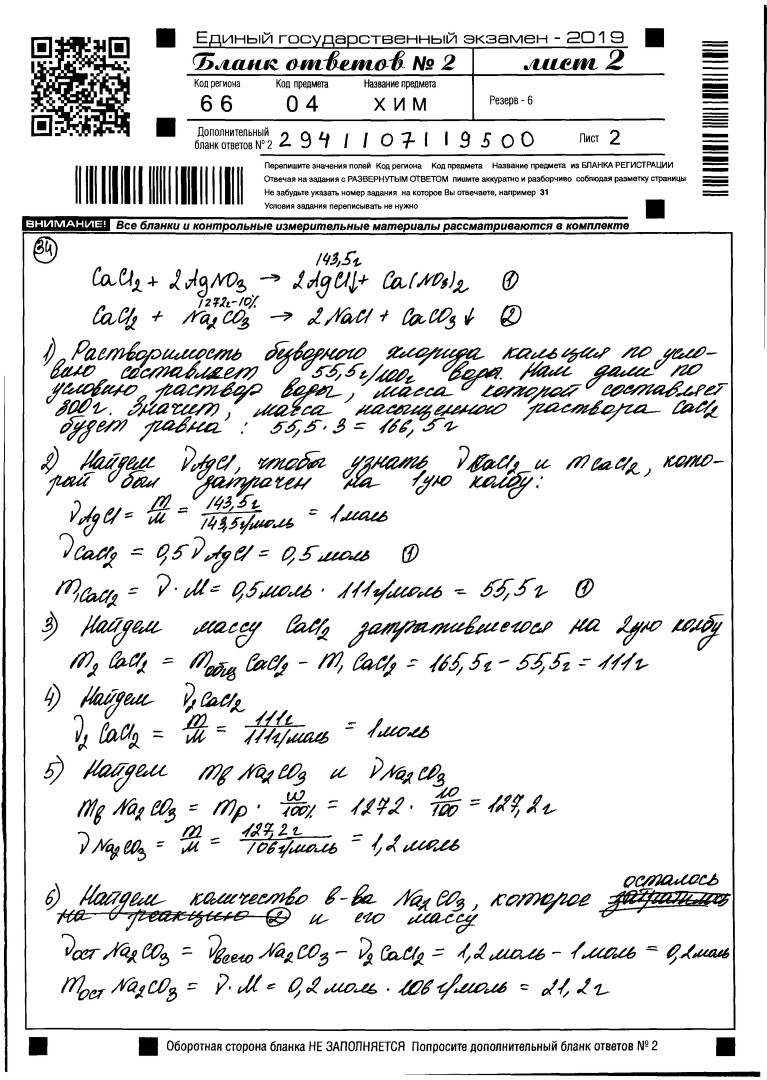 Единый государственный экзамен - 2019
Бланк ответов № 2 лист 2
Код региона Код предмета Название предмета
66 04 ХИМ Резерв - 6
Дополнительный бланк ответов № 2 2941107119500 Лист 2
Перепишите значения полей Код региона Код предмета Название предмета из БЛАНКА РЕГИСТРАЦИИ
Отвечая на задания с РАЗВЕРНУТЫМ ОТВЕТОМ пишите аккуратно и разборчиво соблюдая разметку страницы
Не забудьте указать номер задания на которое Вы отвечаете, например 31
Условия задания переписывать не нужно
ВНИМАНИЕ! Все бланки и контрольные измерительные материалы рассматриваются в комплекте
34
143,5г
CaCl2 + 2AgNO3 → 2AgCl↓ + Ca(NO3)2 ①
1272г-10%
CaCl2 + Na2CO3 → 2NaCl + CaCO3↓ ②
1) Растворимость безводного хлорида кальция по усло-
вию составляет 55,5г/100г воды. Нам дали по
условию раствор воды, масса которой составляет
300г. Значит, масса насыщенного раствора CaCl2
будет равна: 55,5·3 = 166,5г
2) Найдем νAgCl, чтобы узнать νCaCl2 и mCaCl2, кото-
рый был затрачен на 1ую колбу:
νAgCl = m/M = 143,5г/143,5г/моль = 1моль
νCaCl2 = 0,5νAgCl = 0,5моль ①
m1CaCl2 = ν·M = 0,5моль·111г/моль = 55,5г ①
3) Найдем массу CaCl2 затратившегося на 2ую колбу
m2 CaCl2 = mобщ CaCl2 - m1 CaCl2 = 165,5г - 55,5г = 111г
4) Найдем ν2CaCl2
ν2 CaCl2 = m/M = 111г/111г/моль = 1моль
5) Найдем mв Na2CO3 и νNa2CO3
mв Na2CO3 = mр · w/100% = 1272 · 10/100 = 127,2г
νNa2CO3 = m/M = 127,2г/106г/моль = 1,2моль
осталось
6) Найдем количество в-ва Na2CO3, которое затратилось
на реакцию ② и его массу
νост Na2CO3 = νвсего Na2CO3 - ν2 CaCl2 = 1,2моль - 1моль = 0,2моль
mост Na2CO3 = ν·M = 0,2моль·106г/моль = 21,2г
Оборотная сторона бланка НЕ ЗАПОЛНЯЕТСЯ Попросите дополнительный бланк ответов № 2